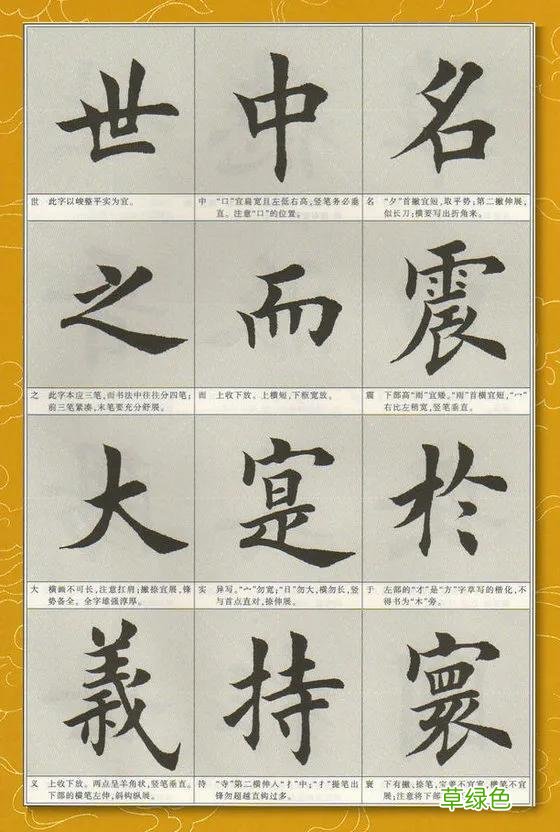 世 中 名
世 此字以峻整平实为宜。
中 “口”宜扁宽且左低右高,竖笔务必垂
直。注意“口”的位置。
名 “夕”首撇宜短,取平势;第二撇伸展,
似长刀;横要写出折角来。
之 而 震
之 此字本应三笔,而书法中往往分四笔;
前三笔紧凑,末笔要充分舒展。
而 上收下放。上横短,下框宽放。
震 下部高“雨”宜矮。“雨”首横宜短,“冖”
右比左稍宽,竖笔垂直。
大 寔 於
大 横画不可长,注意扛肩;撇捺宜展,锋
势备全。全字雄强淳厚。
实 异写。“宀”勿宽;“日”勿大,横勿长,竖
与首点直对,捺伸展。
于 左部的“才”是“方”字草写的楷化,不
得书为“木”旁。
義 持 寰
义 上收下放。两点呈羊角状,竖笔垂直。
下部的横笔左伸,斜钩纵展。
持 “寺”第二横伸入“扌”中;“扌”提笔出
锋勿超越直钩过多。
下有撇、捺笔,宝盖不宜宽,横笔不宜
展;注意将下部
草绿色